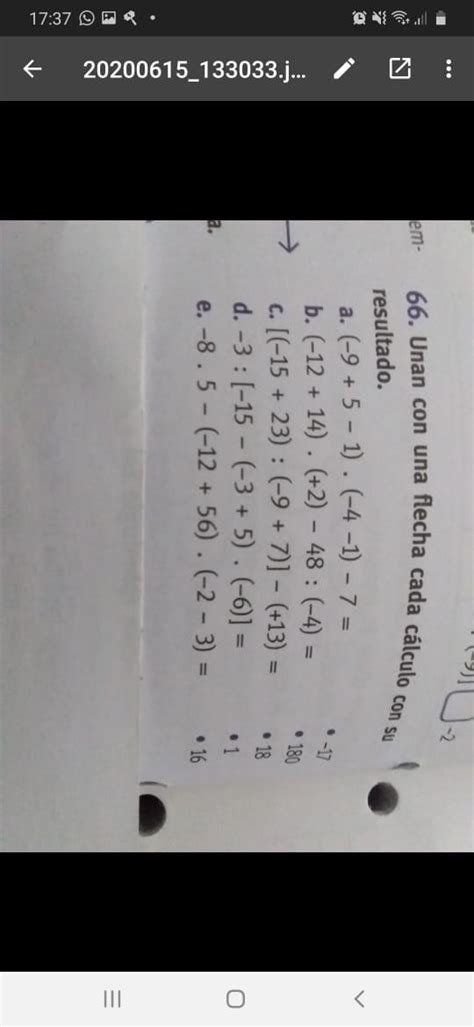 17:37
20200615_133033.j...
(-9)]
-2
em-
66. Unan con una flecha cada cálculo con su
resultado.
a. (-9 + 5 - 1) . (-4 -1) - 7 =
• -17
b. (-12 + 14) . (+2) - 48 : (-4) =
• 180
c. [(-15 + 23) : (-9 + 7)] - (+13) =
• 18
d. -3 : [-15 - (-3 + 5) . (-6)] =
• 1
e. -8 . 5 - (-12 + 56) . (-2 - 3) =
• 16
a.